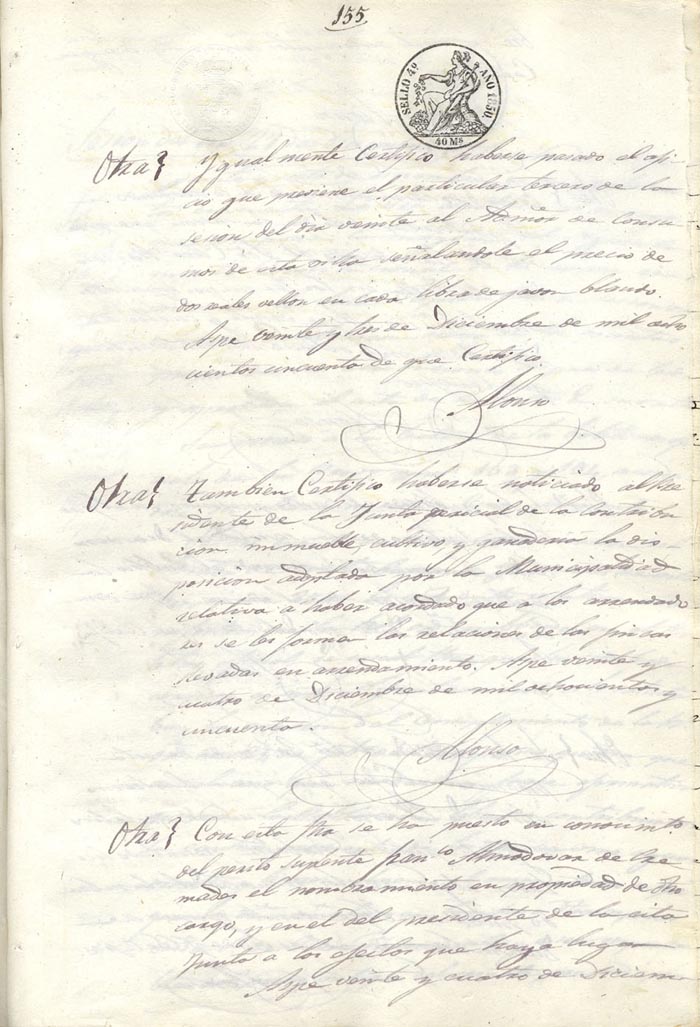 155
SELLO 4º AÑO 1850.
40 Ms
Otra} Ygualmente Certifico haberse pasado el ofi-
cio que previene el particular tercero de la
sesion del dia veinte al Admor de Consu-
mos de esta villa señalandole el precio de
dos reales vellon en cada libra de javon blando.
Aspe veinte y tres de Diciembre de mil ocho
cientos cincuenta de que Certifico.
Alonso
Otra} Tambien Certifico haberse noticiado al Pre
sidente de la Junta pericial de la Contribu
cion inmueble, cultivo, y ganaderia la dis-
posicion adoptada por la Municipalidad
relativa a haber acordado que a los arrendado
res se les forman las relaciones de las fincas
llevadas en arrendamiento. Aspe veinte y
cuatro de Diciembre de mil ochocientos y
cincuenta.
Alonso
Otra} Con esta fha se ha puesto en conocimto
del perito suplente Franco Almodovar de Cre
mades el nombramiento en propiedad de dho
cargo, y en el del presidente de la cita
Junta a los efectos que haya lugar
Aspe veinte y cuatro de Diciem